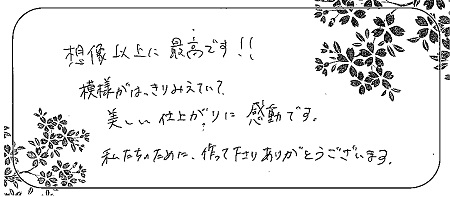 想像以上に最高です!!
模様がはっきりみえていて、
美しい仕上がりに感動です。
私たちのために、作って下さりありがとうございます。